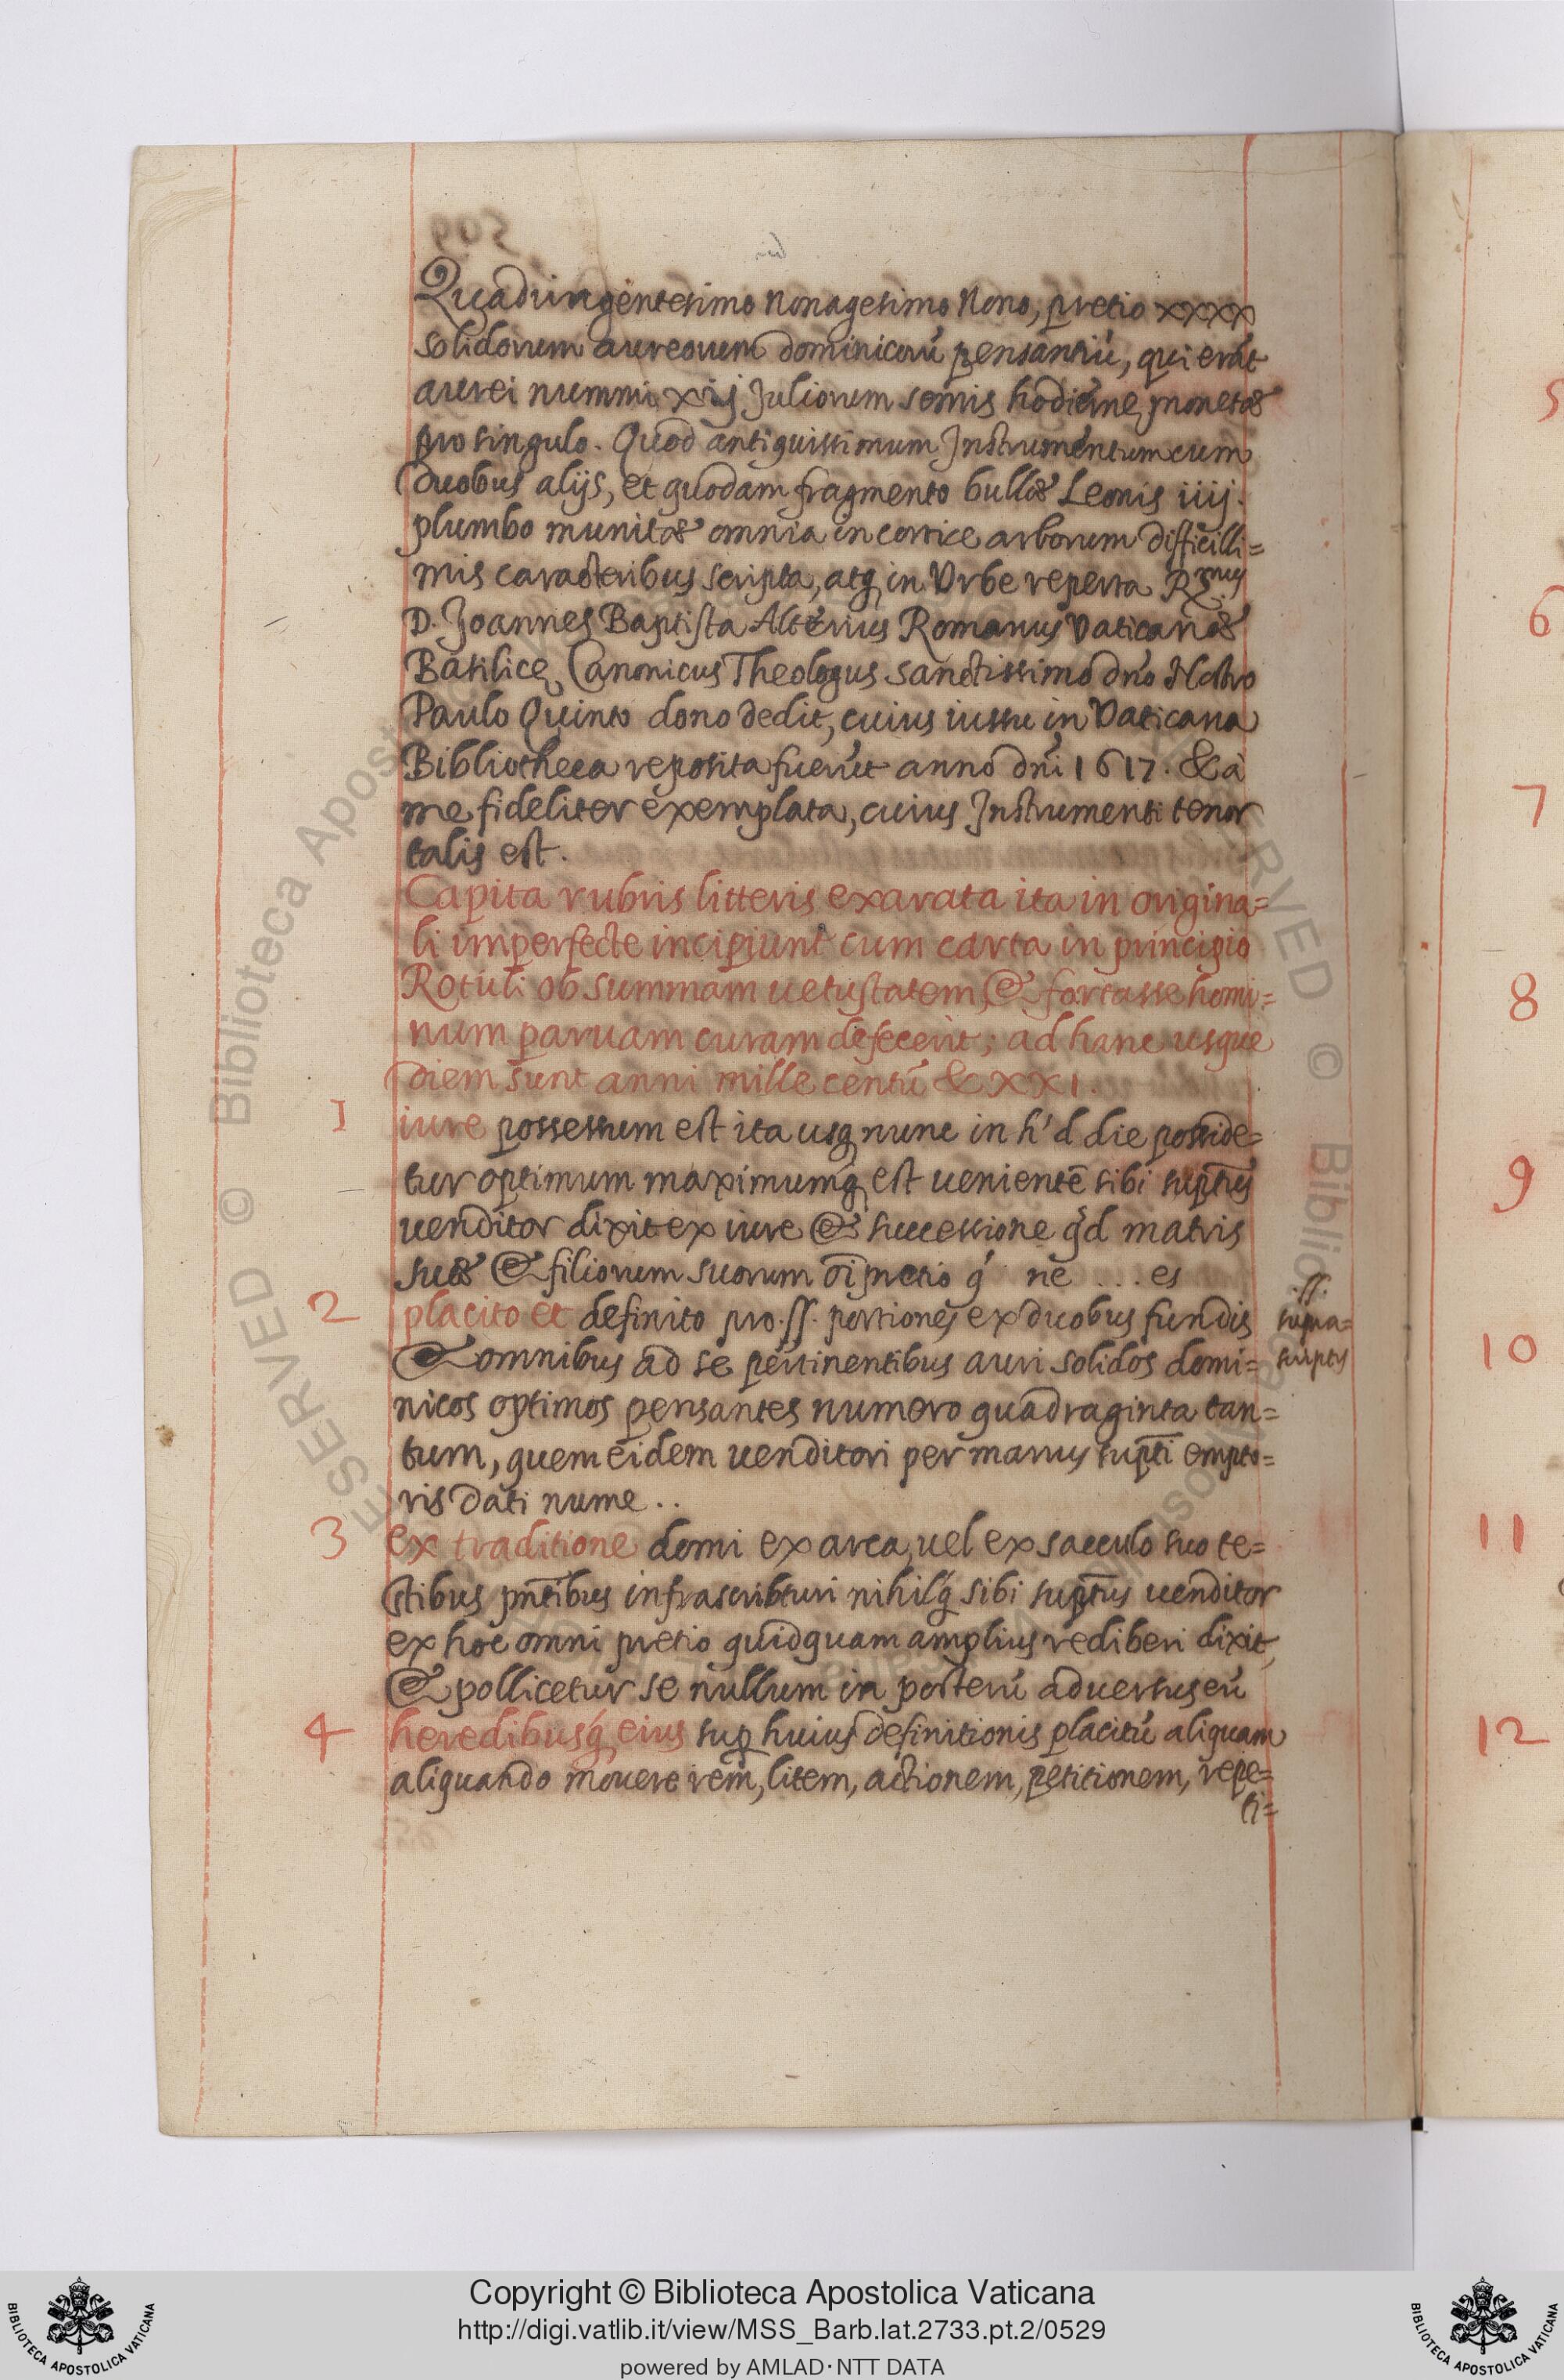 Quadringentesimo nonagesimo Nono, pretio xxxx
solidorum aureorum dominicorū pensantiū, qui erāt
aurei nummi xij Juliorum semis hodierne monetæ
pro singulo. Quod antiquissimum Instrumentum cum
duobus alijs, et quodam fragmento bullæ Leonis iiij.
plumbo munitæ omnia in cortice arborum difficilli=
mis caracteribus scripta, atq in Vrbe reperta R.mus
D. Joannes Baptista Alterius Romanus Vaticanæ
Basilice Canonicus Theologus sanctissimo dño Nostro
Paulo Quinto dono dedit, cuius iussu in Vaticana
Bibliotheca reposita fuerūt anno dñi 1617. & à
me fideliter exemplata, cuius Instrumenti tenor
talis est.
Capita rubris litteris exarata ita in origina=
li imperfecte incipiunt cum carta in principio
Rotuli ob summam uetustatem & fortasse homi=
num paruam curam defecerit; ad hanc usque
diem sunt anni mille centū & XXI.
1 iure possessum est ita usq nunc in h'd die posside=
tur optimum maximumq est uenientē sibi suptus
uenditor dixit ex iure & successione qd matris
suæ & filiorum suorum oī pretio q' ne ... es
2 placito et definito pro .ss. portiones ex duobus fundis
.ss. supra=
scriptis
& omnibus ad se pertinentibus auri solidos domi=
nicos optimos pensantes numero quadraginta tan=
tum, quem eidem uenditori per manus supti empto=
ris dati nume..
3 ex traditione domi ex arca, uel ex sacculo suo te=
stibus pñtibus infrascribturi nihilq sibi suptus uenditor
ex hoc omni pretio quidquam amplius rediberi dixit,
& pollicetur se nullum in posterū aduersus eū
4 heredibusq eius sup huius definitionis placitū aliquam
aliquando mouere rem, litem, actionem, petitionem, repe=
ti=
5
6
7
8
9
10
11
12
Copyright © Biblioteca Apostolica Vaticana
http://digi.vatlib.it/view/MSS_Barb.lat.2733.pt.2/0529
powered by AMLAD·NTT DATA
BIBLIOTECA APOSTOLICA VATICANA
BIBLIOTECA APOSTOLICA VATICANA